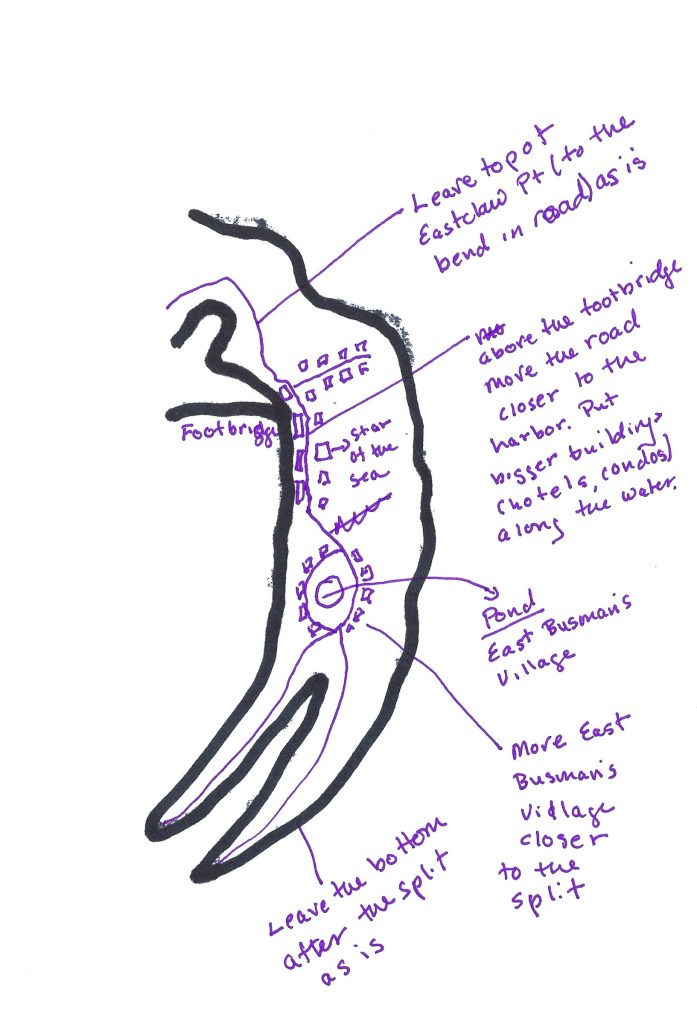 Leave top of
Eastclaw Pt (to the
bend in road) as is
above the footbridge
move the road
closer to the
harbor. Put
bigger buildings
(hotels, condos)
along the water.
Footbridge
star
of the
sea
Pond
East Busman's
Village
More East
Busman's
Village
closer
to the
split
Leave the bottom
after the split
as is